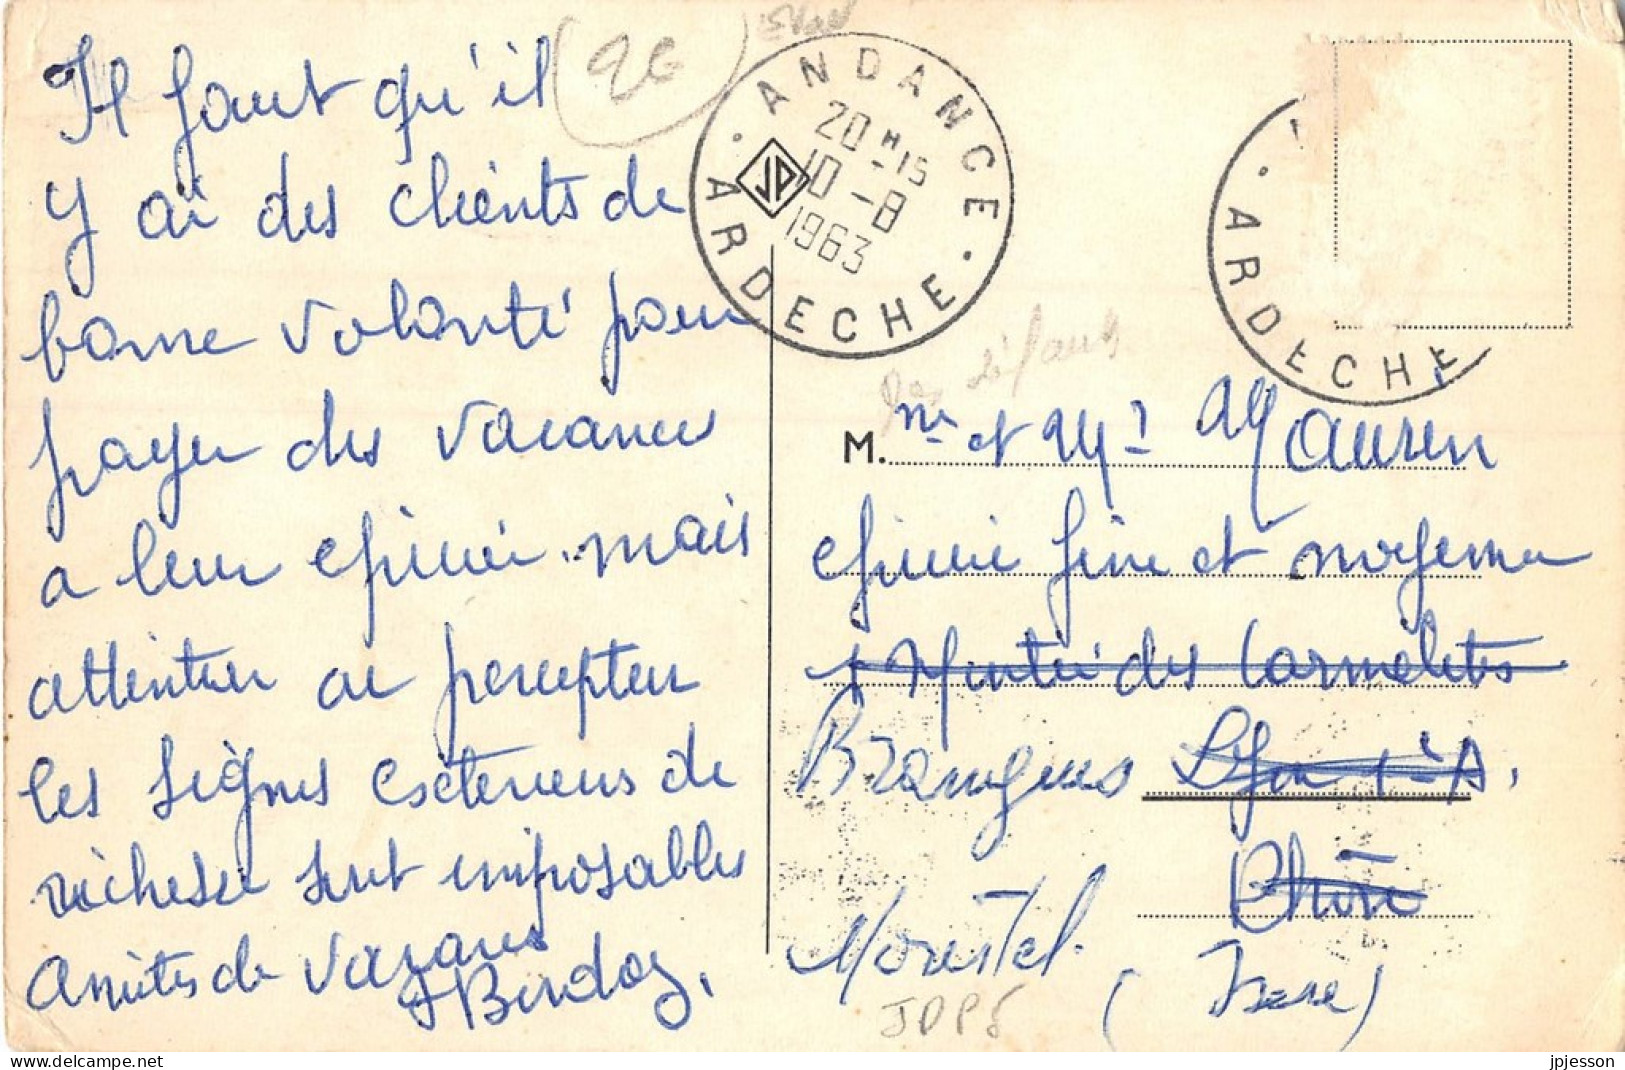 Il faut qu'il
y ai des clients de
bonne volonté pour
payer des vacances
a leur epicerie mais
attention au percepteur
les signes exterieurs de
richesse sont imposables
Amitiés de Vazanes
Berdog.
ANDANCE
20 H 15
10 - 8
1963
ARDECHE
JP
ARDECHE
pas défauts
M. me et Mr Mauren
epicerie fine et moyenne
1 Montée des Carmelites
Brangues Lyon 1er A.
Rhône
Morestel.
(Isere)
jpjesson
www.delcampe.net